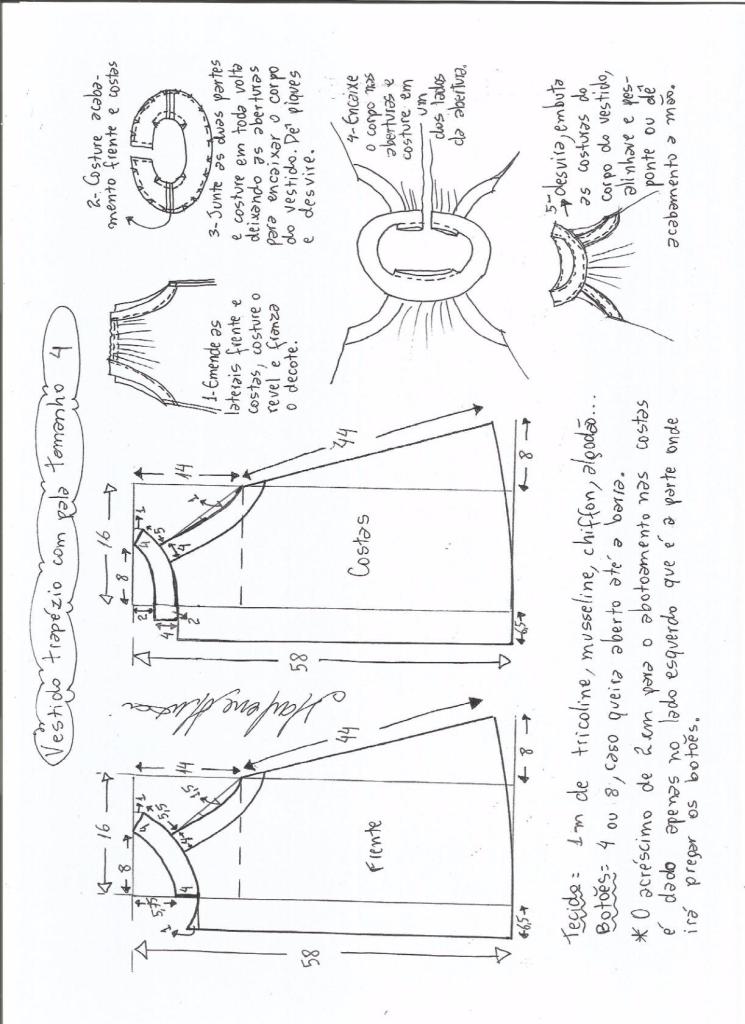 Vestido trapézio com pala tamanho 4
1-Emende as
laterais frente e
costas, costure o
revel e franza
o decote.
2- Costure acaba-
mento frente e costas
3-Junte as duas partes
e costure em toda volta
deixando as aberturas
para encaixar o corpo
do vestido. Dê piques
e desvire.
4-Encaixe
o corpo nas
aberturas e
costure em
um
dos lados
da abertura.
5-desvira, embuta
as costuras do
corpo do vestido,
alinhave e pes-
ponte ou dê
acabamento a mão.
16
8
1
4
14
5,5
4
1,5
5,5
4
1
44
58
Frente
6,5
8
16
8
1
4
14
5
4
1
2
4
2
44
58
Costas
6,5
8
Tecido= 1m de tricoline, musseline, chiffon, algodão...
Botões= 4 ou 8, caso queira aberto até a barra.
* O acréscimo de 2cm para o abotoamento nas costas
é dado apenas no lado esquerdo que é a parte onde
irá pregar os botões.